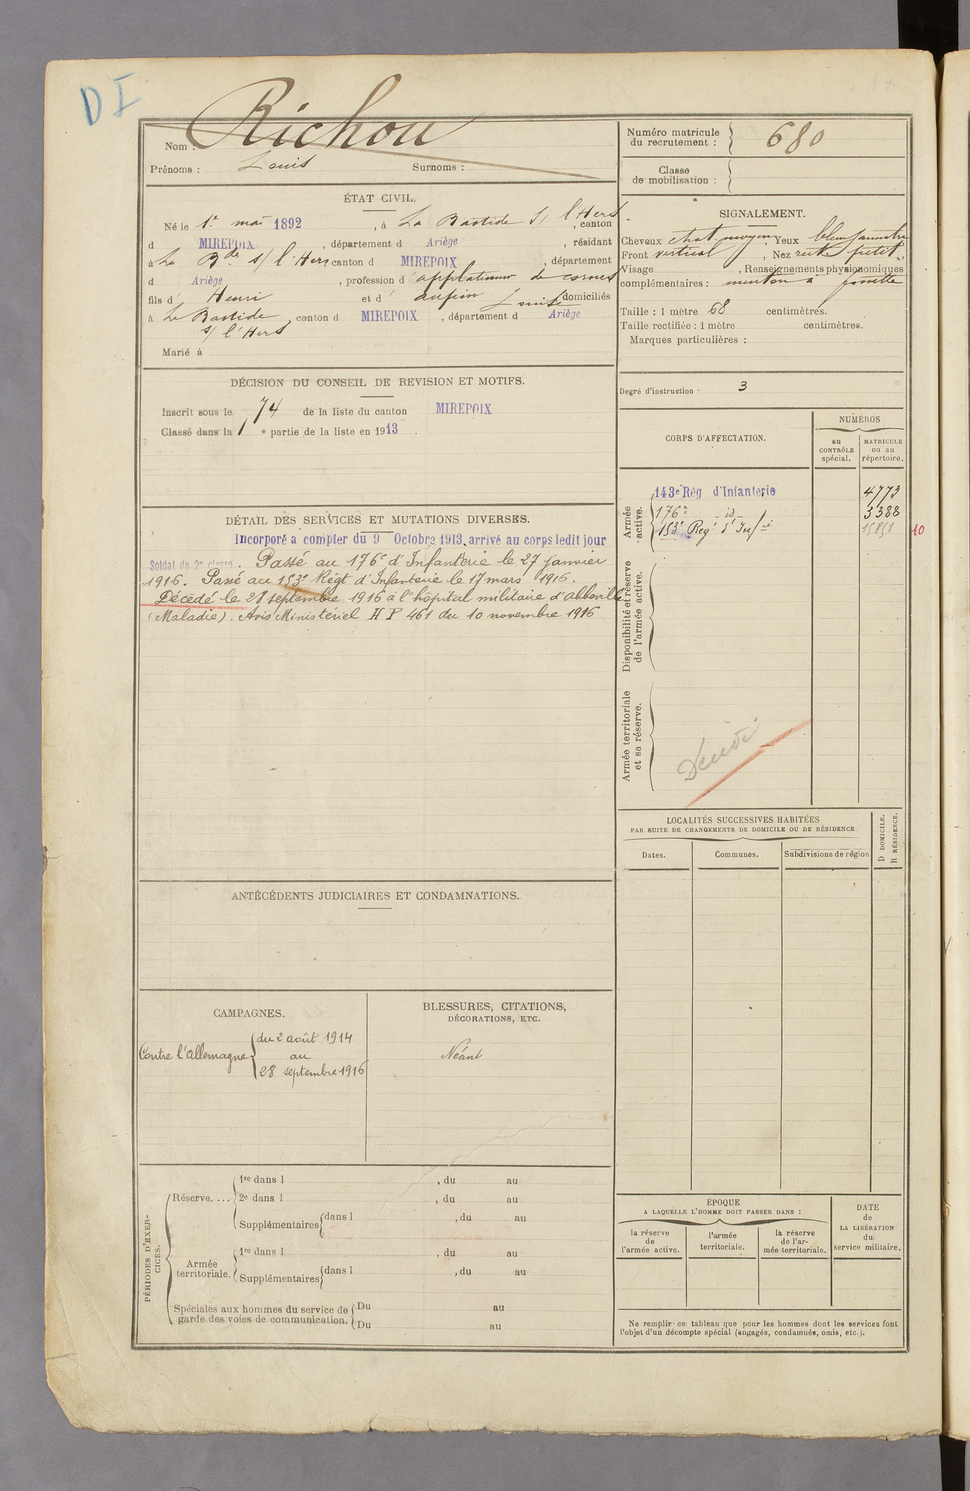 D I
Nom : Richou
Prénoms : Louis Surnoms :
ÉTAT CIVIL.
Né le 1r mai 1892, à La Bastide s/ l'Hers, canton
d MIREPOIX, département d Ariège, résidant
à La Bde s/ l'Hers canton d MIREPOIX, département
d Ariège, profession d' applatisseur de cornes
fils d' Henri et d' Louise domiciliés
à La Bastide s/ l'Hers, canton d MIREPOIX, département d Ariège
Marié à
DÉCISION DU CONSEIL DE REVISION ET MOTIFS.
Inscrit sous le n° 74 de la liste du canton MIREPOIX
Classé dans la 1 e partie de la liste en 1913.
DÉTAIL DES SERVICES ET MUTATIONS DIVERSES.
Incorporé a compter du 9 Octobre 1913, arrivé au corps ledit jour
Soldat de 2e classe. Passé au 176e d'Infanterie le 27 janvier
1916. Passé au 153e Régt d'Infanterie le 17 mars 1916.
Décédé le 28 septembre 1916 à l'hôpital militaire d'abbeville
(Maladie). Avis Ministériel H P 461 du 10 novembre 1916
ANTÉCÉDENTS JUDICIAIRES ET CONDAMNATIONS.
CAMPAGNES.
Contre l'allemagne du 2 août 1914
au
28 septembre 1916
BLESSURES, CITATIONS,
DÉCORATIONS, ETC.
Néant
PÉRIODES D'EXERCICES.
Réserve. ... 1re dans l , du au
2e dans l , du au
Supplémentaires dans l , du au
Armée territoriale. 1re dans l , du au
Supplémentaires dans l , du au
Spéciales aux hommes du service de Du au
garde des voies de communication. Du au
Numéro matricule
du recrutement : 680
Classe
de mobilisation :
SIGNALEMENT.
Cheveux chat. moyen, Yeux bleu jaunâtre
Front vertical, Nez petit,
Visage , Renseignements physionomiques
complémentaires : menton à fossette
Taille : 1 mètre 68 centimètres.
Taille rectifiée : 1 mètre centimètres.
Marques particulières :
Degré d'instruction : 3
CORPS D'AFFECTATION.
NUMÉROS
au
CONTRÔLE
spécial.
MATRICULE
ou au
répertoire.
Armée
active.
143e Rég d'Infanterie 4773
176e _id_ 3388
153e Regt d'Infie 15851 10
Disponibilité et réserve
de l'armée active.
Armée territoriale
et sa réserve.
Décédé
LOCALITÉS SUCCESSIVES HABITÉES
PAR SUITE DE CHANGEMENTS DE DOMICILE OU DE RÉSIDENCE
Dates. Communes. Subdivisions de région
D DOMICILE.
R RÉSIDENCE.
ÉPOQUE
A LAQUELLE L'HOMME DOIT PASSER DANS :
la réserve
de
l'armée active.
l'armée
territoriale.
la réserve
de l'ar-
mée territoriale.
DATE
de
LA LIBÉRATION
du
service militaire.
Ne remplir ce tableau que pour les hommes dont les services font
l'objet d'un décompte spécial (engagés, condamnés, omis, etc.).